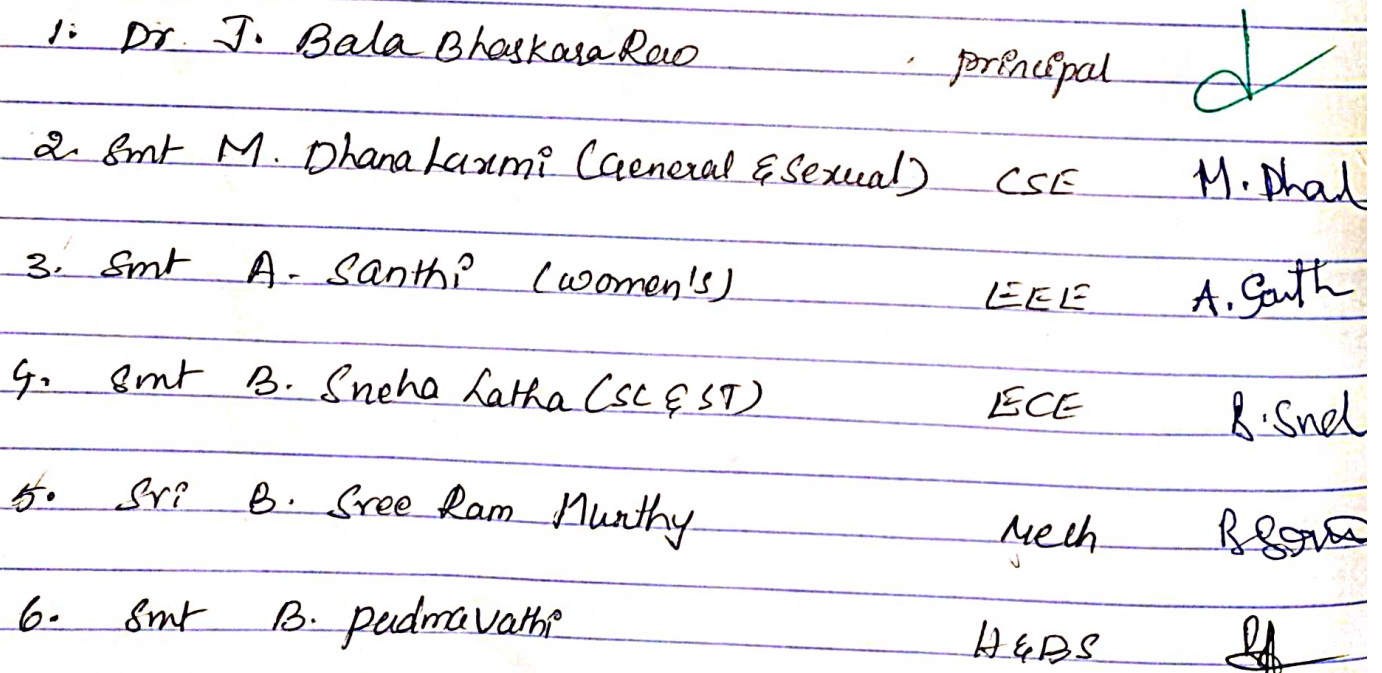 1. Dr. J. Bala Bhaskara Rao principal
2. Smt M. Dhana Laxmi (General & Sexual) CSE M. Dhal
3. Smt A. Santhi (women's) EEE A. Santh
4. Smt B. Sneha Latha (SC & ST) ECE B. Snel
5. Sri B. Sree Ram Murthy Mech
6. Smt B. padmavathi H&BS